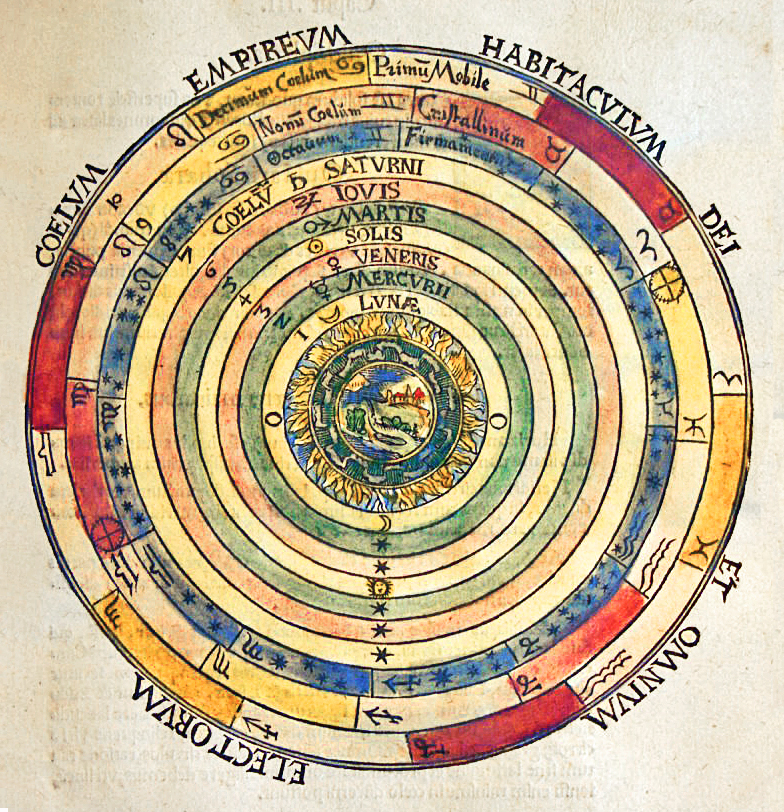 COELVM EMPIREVM HABITACVLVM DEI ET OMNIVM ELECTORVM
Decimum Coelum ♋ Primū Mobile ♊
♋ Nonū Coelum ♊ Cristallinum ♉
♋ Octauum ♊ Firmamentum
COELV̄ ♄ SATVRNI
♃ IOVIS
♂ MARTIS
☉ SOLIS
♀ VENERIS
☿ MERCVRII
LVNÆ
10
9
8
7
6
5
4
3
2
1